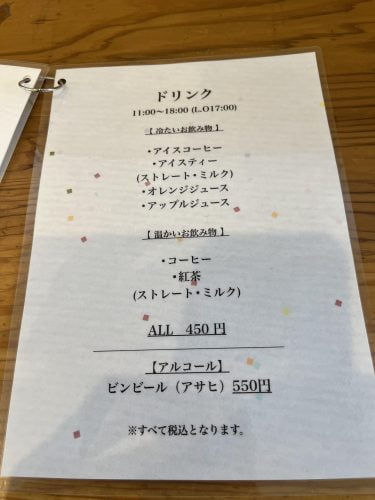 ドリンク
11:00〜18:00 (L.O17:00)
【 冷たいお飲み物 】
・アイスコーヒー
・アイスティー
(ストレート・ミルク)
・オレンジジュース
・アップルジュース
【 温かいお飲み物 】
・コーヒー
・紅茶
(ストレート・ミルク)
ALL 450 円
【アルコール】
ビンビール（アサヒ）550円
※すべて税込となります。